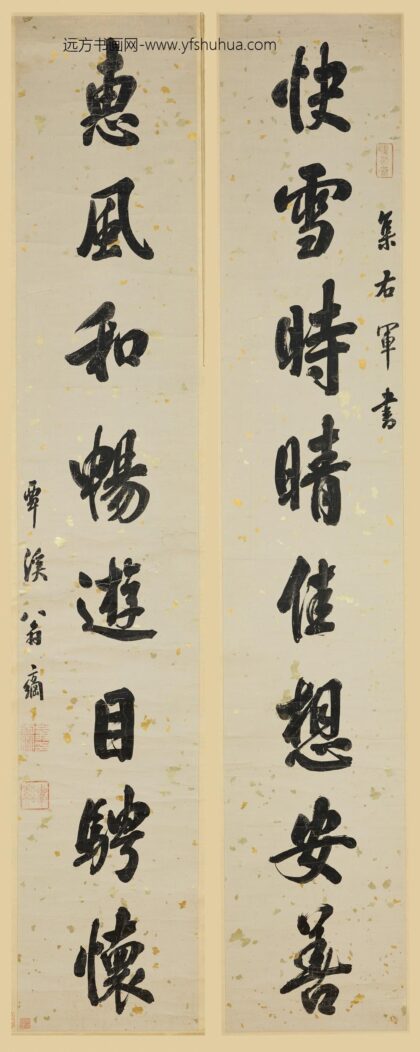 远方书画网-www.yfshuhua.com
快雪時晴佳想安善
集右軍書
惠風和暢遊目騁懷
覃溪翁方綱